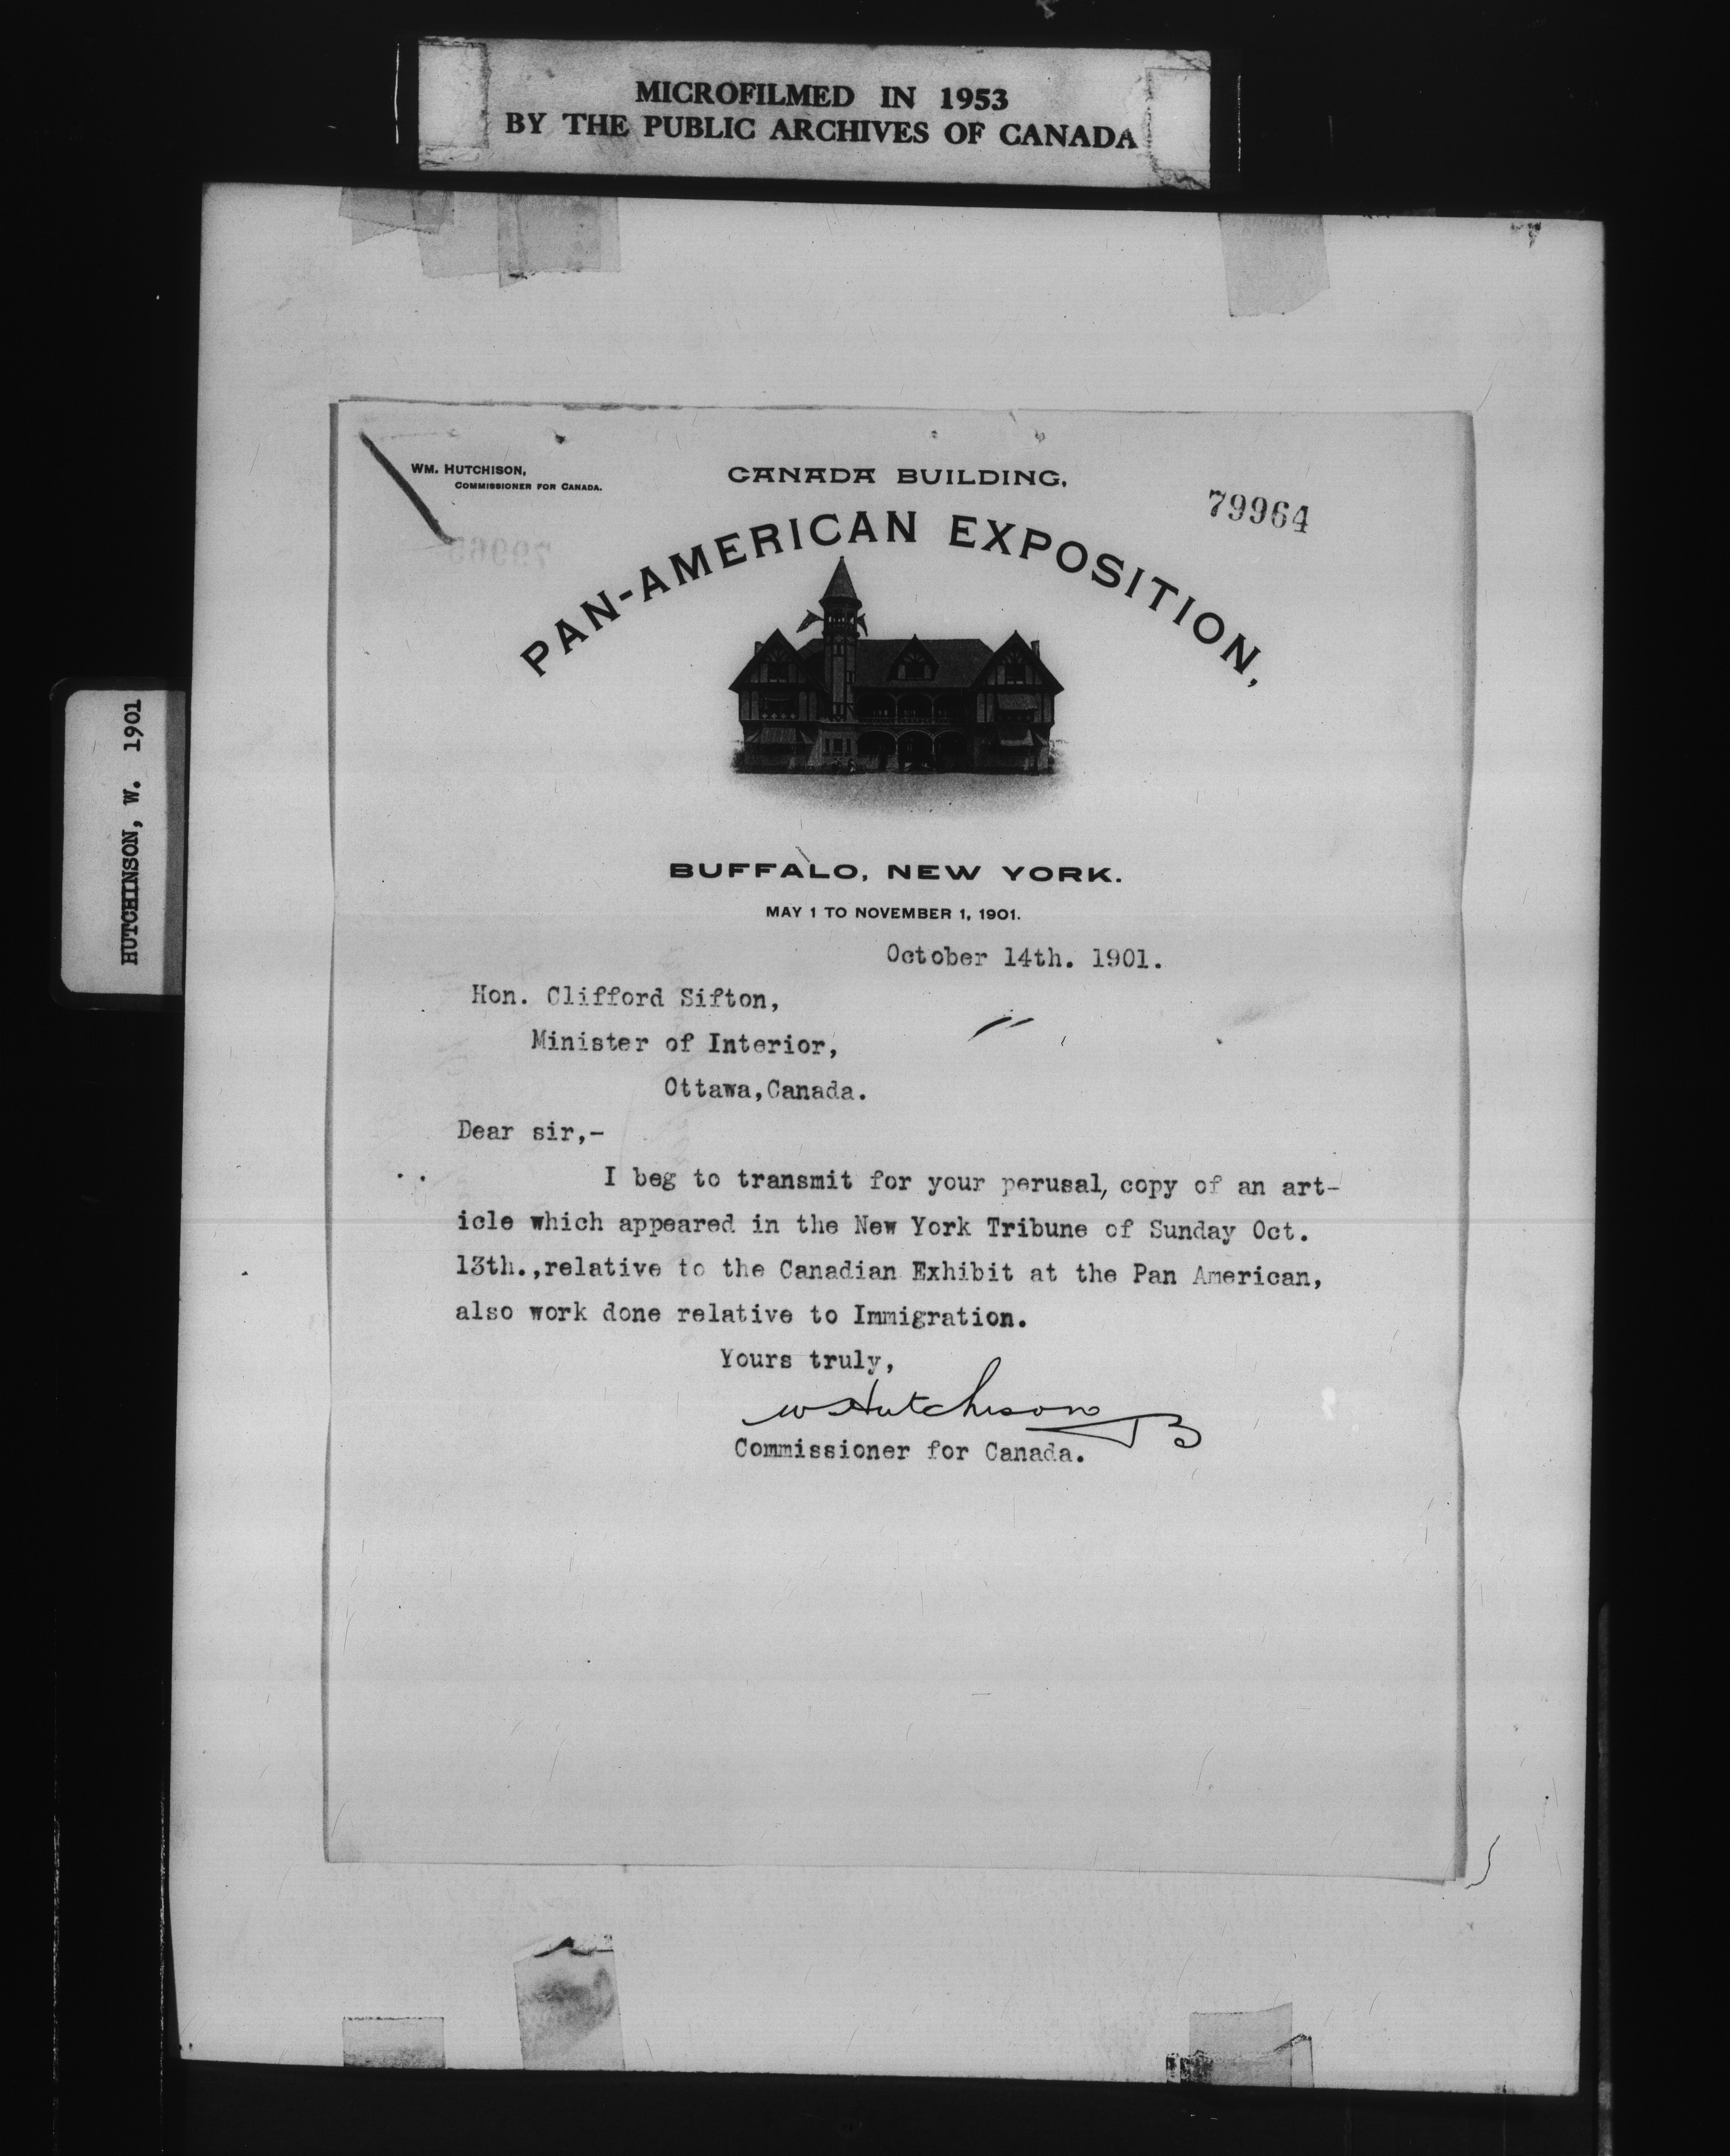 MICROFILMED IN 1953
BY THE PUBLIC ARCHIVES OF CANADA
HUTCHINSON, W. 1901
WM. HUTCHISON,
COMMISSIONER FOR CANADA.
CANADA BUILDING,
79964
79965
PAN-AMERICAN EXPOSITION,
BUFFALO, NEW YORK.
MAY 1 TO NOVEMBER 1, 1901.
October 14th. 1901.
Hon. Clifford Sifton,
Minister of Interior,
Ottawa,Canada.
Dear sir,-
I beg to transmit for your perusal, copy of an art-
icle which appeared in the New York Tribune of Sunday Oct.
13th.,relative to the Canadian Exhibit at the Pan American,
also work done relative to Immigration.
Yours truly,
W Hutchison
B
Commissioner for Canada.